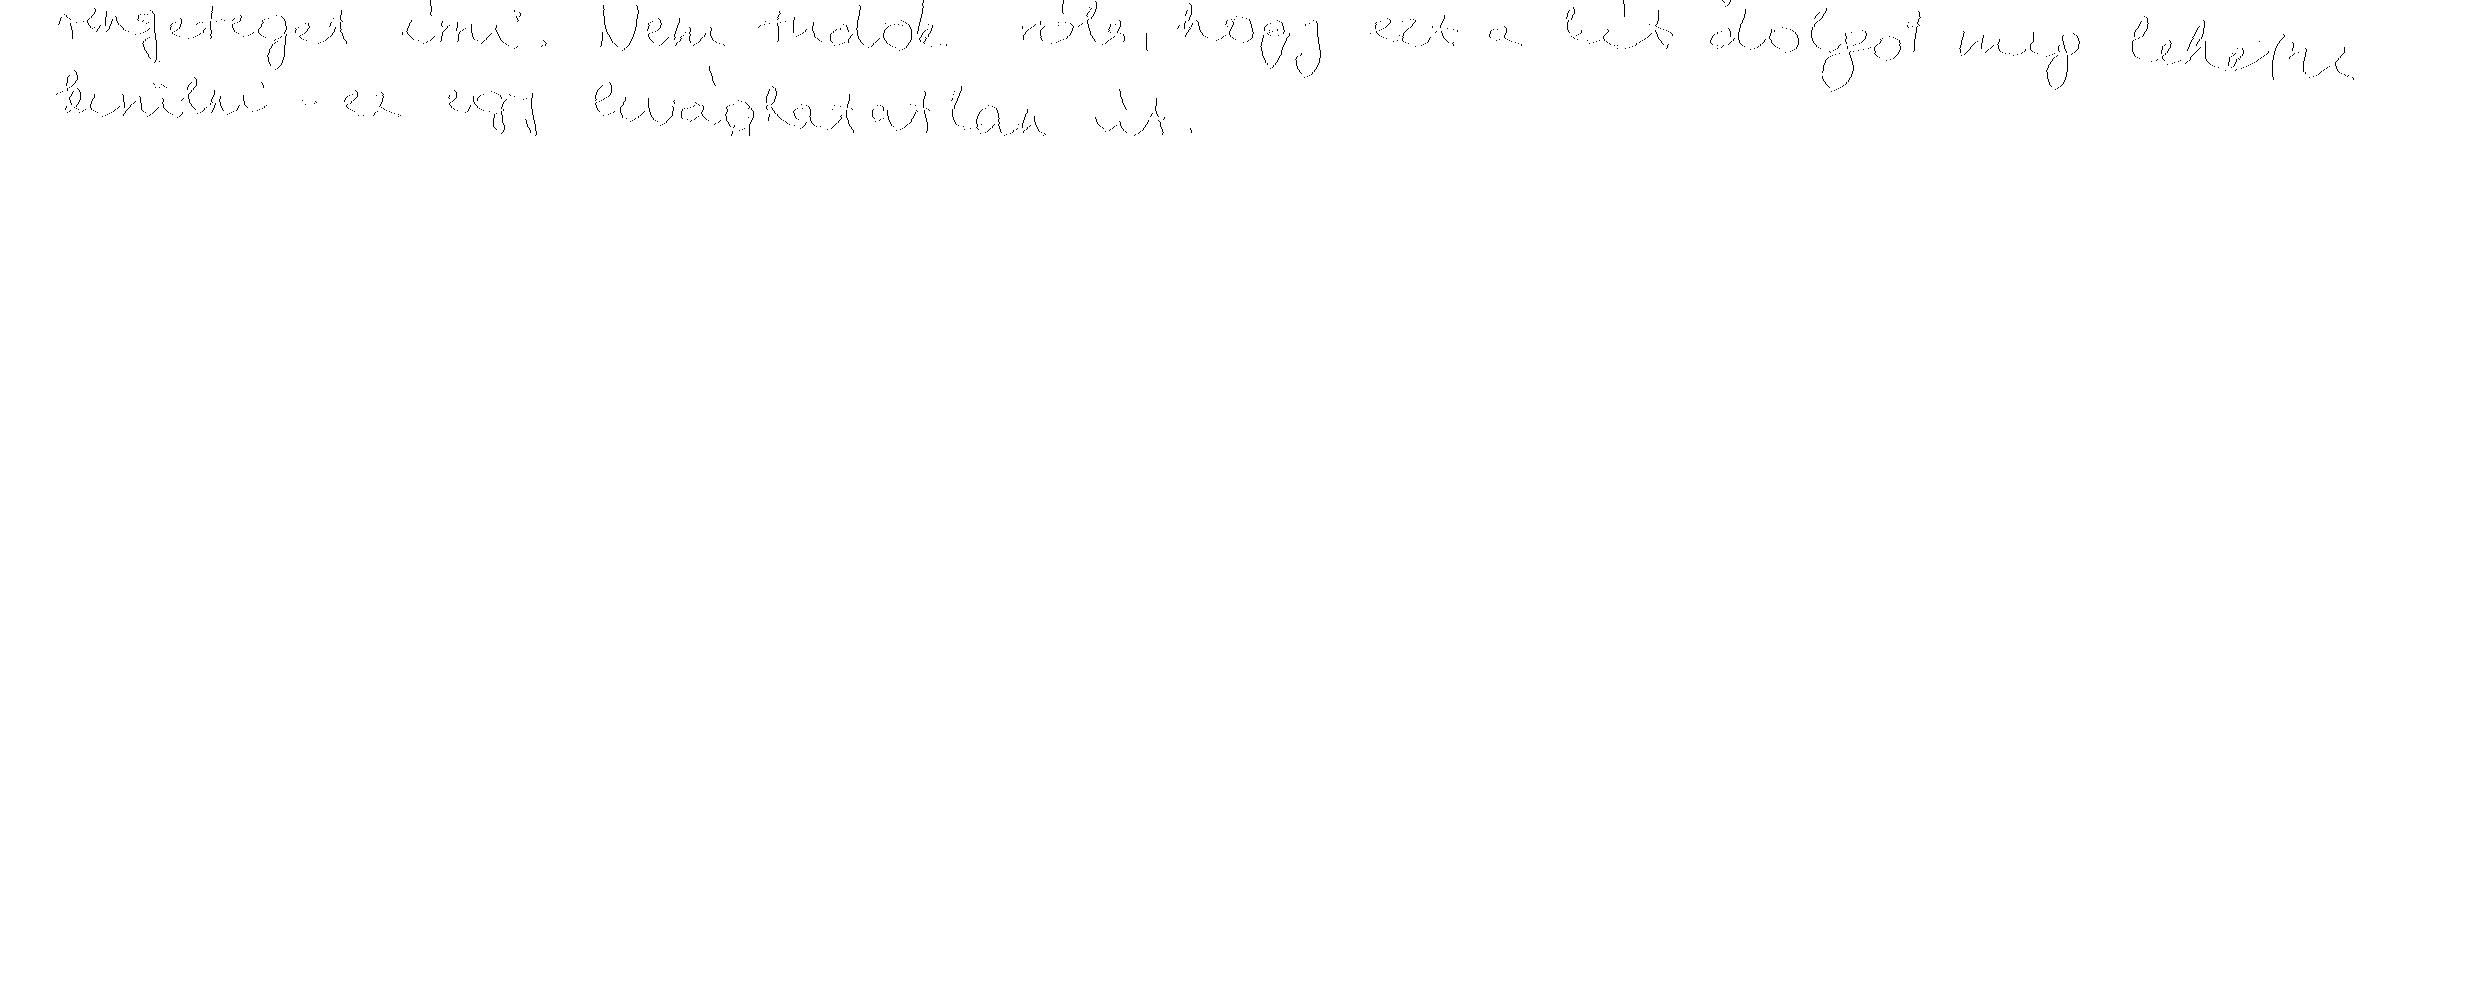 rengeteget írni. Nem tudok róla, hogy ezt a két dolgot meg lehetne
kerülni - ez egy levághatatlan út.